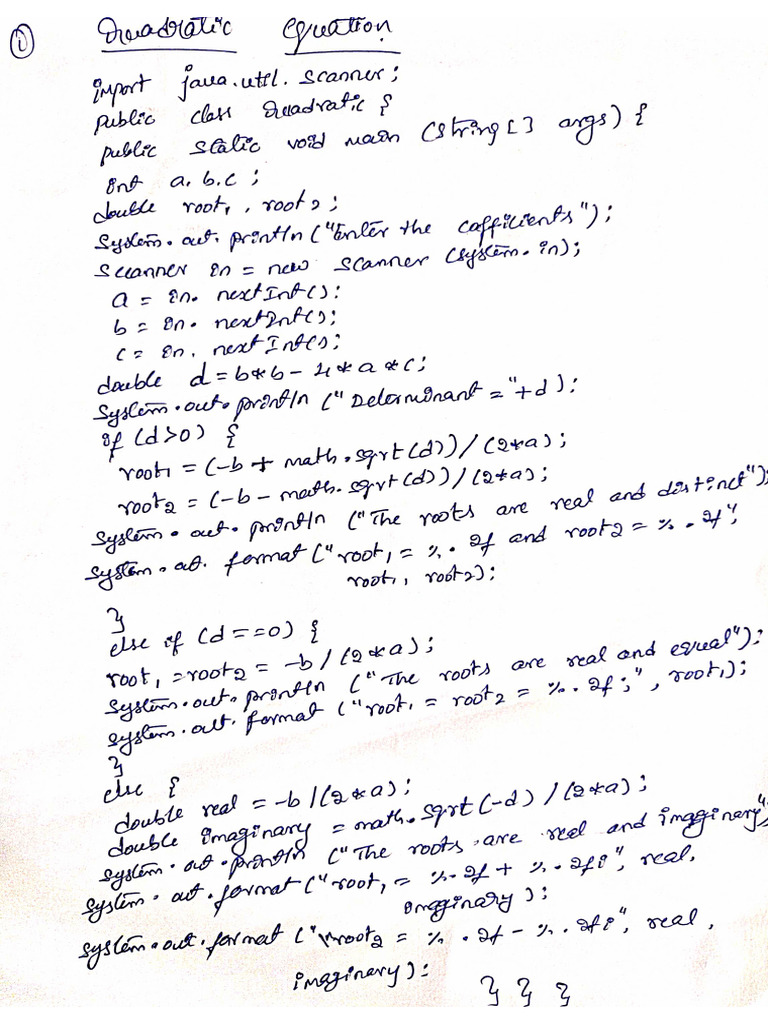 ① Quadratic equation.
import java.util.scanner;
public class Quadratic {
public static void main (string [] args) {
int a, b, c ;
double root1, root2 ;
system.out.println ("Enter the cofficients");
scanner in = new scanner (system.in);
a = in. nextInt();
b = in. nextInt();
c = in. nextInt();
double d = b*b - 4*a*c;
system.out.println ("Determinant = "+d);
if (d>0) {
root1 = (-b + math.sqrt(d)) / (2*a);
root2 = (-b - math.sqrt(d)) / (2*a);
system.out.println ("The roots are real and distinct");
system.out.format ("root1 = %.2f and root2 = %.2f",
root1, root2);
}
else if (d==0) {
root1 = root2 = -b / (2*a);
system.out.println ("The roots are real and equal");
system.out.format ("root1 = root2 = %.2f;", root1);
}
else {
double real = -b / (2*a);
double imaginary = math.sqrt (-d) / (2*a);
system.out.println ("The roots are real and imagginary",
system.out.format ("root1 = %.2f + %.2fi", real,
imagginary);
system.out.format ("\nroot2 = %.2f - %.2fi", real,
imaginary);
} } }